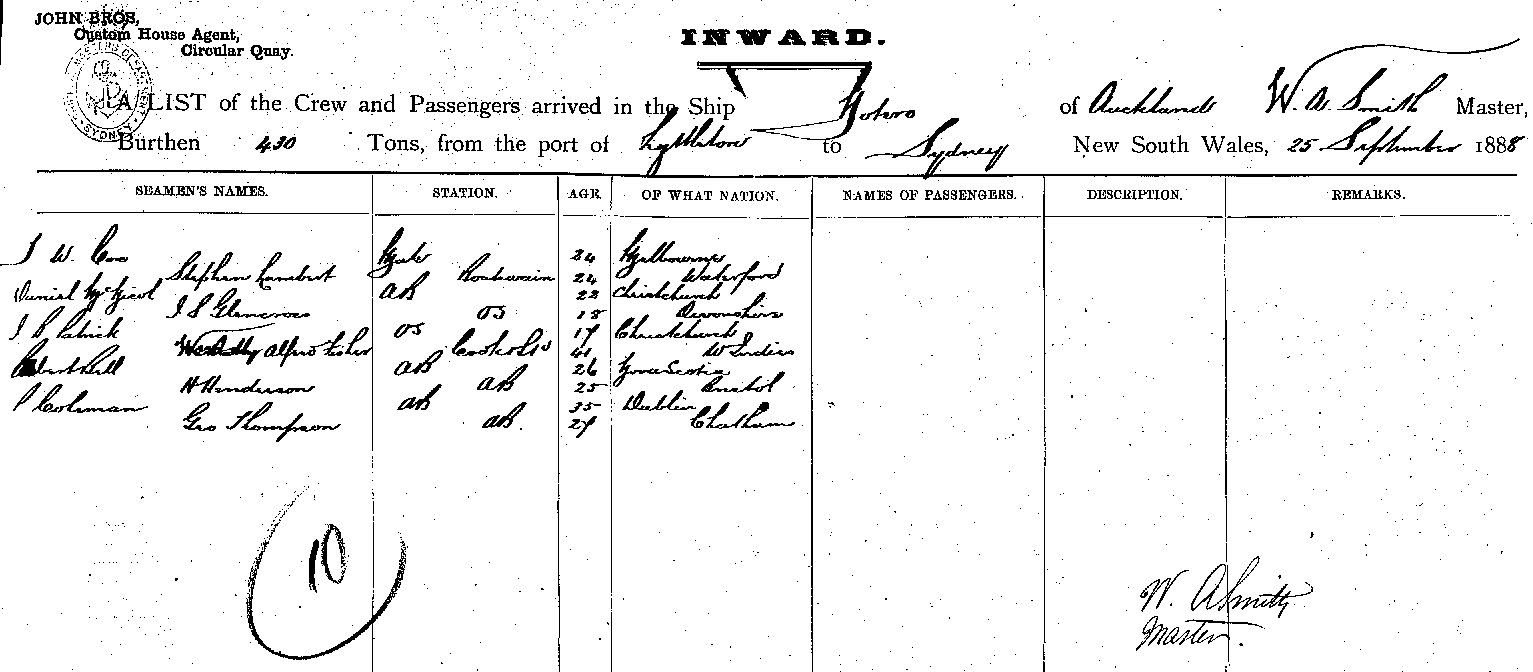 JOHN BROS,
Custom House Agent,
Circular Quay.
SYDNEY
INWARD.
A LIST of the Crew and Passengers arrived in the Ship of Auckland W. A. Smith Master,
Burthen 430 Tons, from the port of Lyttleton to Sydney New South Wales, 25 September 1888
SEAMEN'S NAMES. STATION. AGE. OF WHAT NATION. NAMES OF PASSENGERS. DESCRIPTION. REMARKS.
W. Mate 24 Melbourne
Stephen Lambert 24 Waterford
Daniel McNicol AB 22 Christchurch
J S Glencross OS 18 Devonshire
J P Patrick OS 17 Christchurch
Alfred Fisher 41 W Indies
Albert Hill AB 26 Nova Scotia
H Henderson AB 25 Bristol
P Coleman AB 35 Dublin
Geo Thompson AB. 27 Chatham
10
W. A Smith
Master.